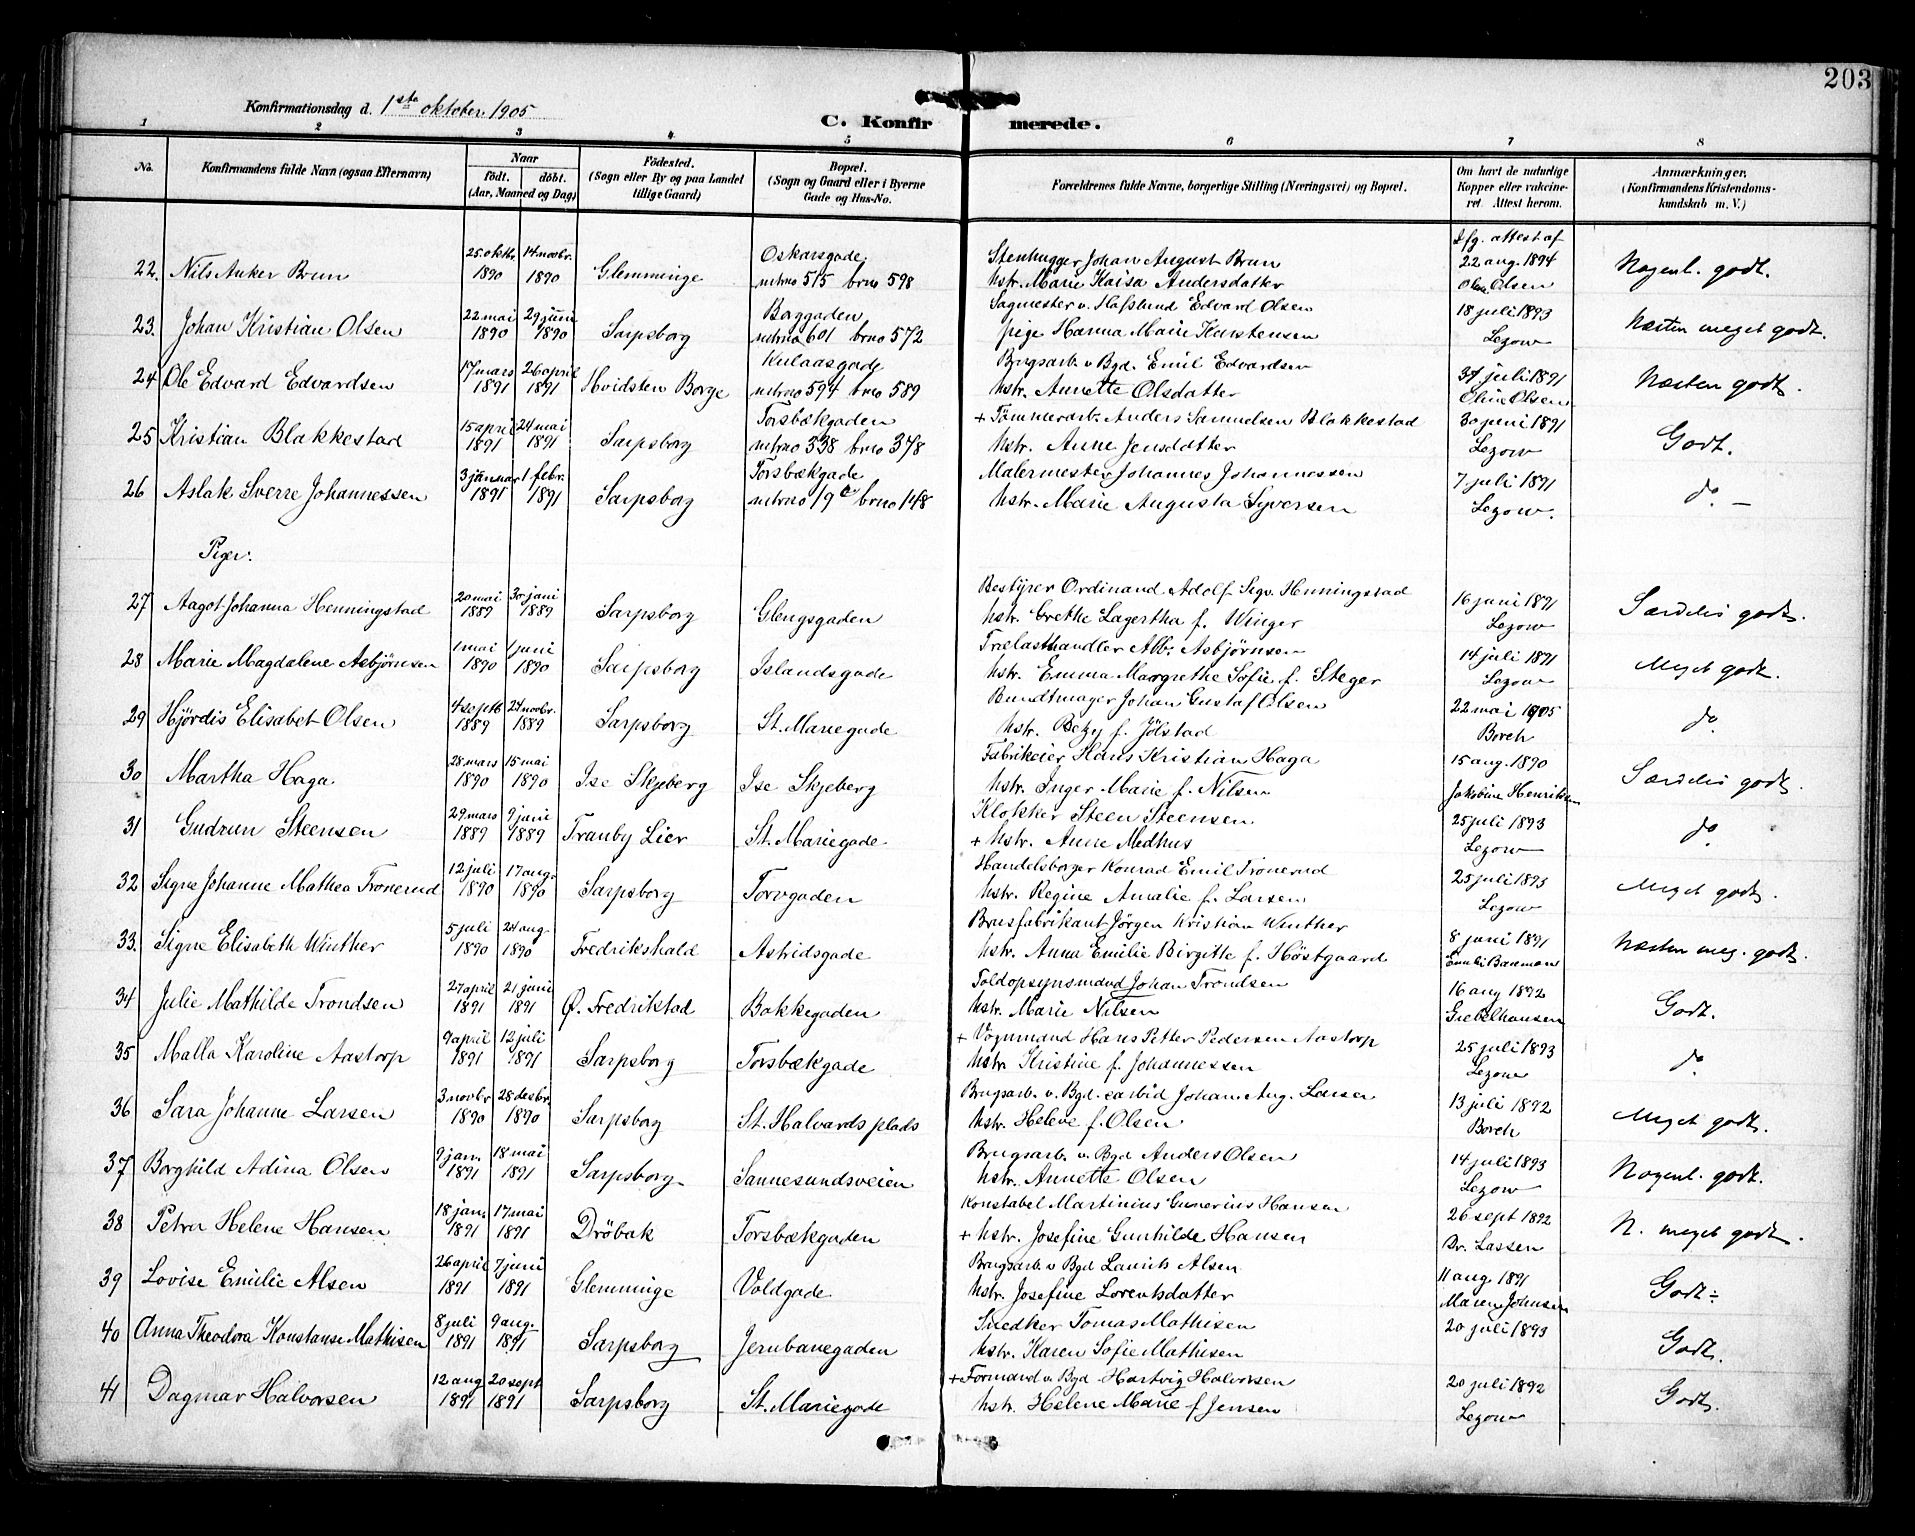 203
Konfirmationsdag d. 1ste oktober 1905
C. Konfirmerede.
1 2 3 4 5 6 7 8
No. Konfirmandens fulde Navn (ogsaa Efternavn) Naar födt. döbt. (Aar, Maaned og Dag) Födested. (Sogn eller By og paa Landet tillige Gaard) Bopæl. (Sogn og Gaard eller i Byerne Gade og Hus-No. Forældrenes fulde Navne, borgerlige Stilling (Næringsvei) og Bopæl. Om havt de naturlige Kopper eller vakcineret. Attest herom. Anmærkninger. (Konfirmandens Kristendomskundskab m. V.)
25. oktbr. 14 novbr. Oskarsgade Stenhugger Johan August Brun Ifg. attest af 22 aug. 1894
22. Nils Anker Brun 1890 1890 Glemminge mtrno 515 brno 598 Hstr. Marie Kaisa Andersdatter Olsen Nogenl. godt.
22 mai 29 juni Borggaden Sagmester v. Hafslund Edvard Olsen 18 juli 1893
23. Johan Kristian Olsen 1890 1890 Sarpsborg mtrno 601 brno 572 pige Hanna Marie Karstensen Lezow Næsten meget godt.
17 mars 26 april Kulaasgade Brugsarb. v. Bgd. Emil Edvardsen 31 juli 1891
24 Ole Edvard Edvardsen 1891 1891 Hvidsten Borge mtrno 594 brno 589 Hstr. Annette Olsdatter Oline Olsen Næsten godt.
15 april 24 mai Torsbækgaden + Tømmerarb. Anders Samuelsen Blakkestad 30 juni 1891
25 Kristian Blakkestad 1891 1891 Sarpsborg mtrno 338 brno 348 Hstr. Anne Jensdatter Lezow Godt.
3 januar 1 febr. Torsbækgade Malermester Johannes Johannessen 7 juli 1891
26 Aslak Sverre Johannessen 1891 1891 Sarpsborg mtrno 19 c brno 148 Hstr. Marie Augusta Syversen Lezow. do. —
Piger:
20 mai 30 juni Bestyrer Ordinand Adolf Sigv. Henningstad 16 juni 1891
27 Aagot Johanna Henningstad 1889 1889 Sarpsborg Glengsgaden Hstr. Grethe Lagertha f. Winger Lezow Særdeles godt.
1 mai 1 juni Trælasthandler Alb. Asbjørnsen 14 juli 1891
28 Marie Magdalene Asbjørnsen 1890 1890 Sarpsborg Islandsgade Hstr. Emma Margrethe Sofie f. Steger Lezow Meget godt.
4 septb 24 novbr. Bundtmager Johan Gustaf Olsen 22 mai 1905
29 Hjördis Elisabet Olsen 1889 1889 Sarpsborg St. Mariegade Hstr. Betzy f. Jölstad Borch do
28 mars 15 mai Fabrikeier Hans Kristian Haga 15 aug. 1890
30 Martha Haga. 1890 1890 Ise Skjeberg Ise Skjeberg Hstr. Inger Marie f. Nilsen Jakobine Henriksen Særdeles godt.
29 mars 9 juni Klokker Steen Steensen 25 juli 1893
31 Gudrun Steensen 1889 1889 Tranby Lier St. Mariegade. + Hstr. Anne Medhus Lezow do.
12 juli 17 aug. Handelsborger Konrad Emil Tronerud 25 juli 1893
32 Signe Johanne Mathea Tronerud 1890 1890 Sarpsborg Torvgaden Hstr. Regine Amalie f. Larsen Lezow Meget godt.
5 juli 24 aug. Brusfabrikant Jörgen Kristian Winther 8 juni 1891
33. Signe Elisabeth Winther 1890 1890 Fredrikshald Astridsgade Hstr. Anna Emilie Birgitte f. Höstgaard Næsten meg. godt.
27 april 21 juni Toldopsynsmand Johan Trondsen 16 aug 1892
34 Julie Mathilde Trondsen 1891 1891 Ø. Fredrikstad Bakkegaden Hstr. Marie Nilsen Giebelhausen Godt.
9 april 12 juli + Vognmand Hans Petter Pedersen Aastorp 25 juli 1893
35 Malla Karoline Aastorp 1891 1891 Sarpsborg Torsbækgade Hstr Kristine f. Johannessen Lezow do.
3 novbr 28 desbr. Brugsarb. v. Bgd. carbid Johan Aug. Larsen 13 juli 1892
36 Sara Johanne Larsen 1890 1890 Sarpsborg St. Halvards plads Hstr. Helene f. Olsen Borch Meget godt.
9 jan. 18 mai Brugsarb. v. Bgd Anders Olsen 14 juli 1893
37 Borghild Adina Olsen 1891 1891 Sarpsborg Sannesundsveien Hstr. Annette Olsen Lezow Nogenl. godt.
18 jan. 17 mai Konstabel Martinius Gunerius Hansen 26 sept 1892
38 Petra Helene Hansen 1891 1891 Dröbak Torsbækgaden + Hstr. Josefine Gunhilde Hansen Dr. Lassen N. meget godt.
26 april 7 juni Brugsarb. v Bgd Laurits Alsen 11 aug. 1891
39 Lovise Emilie Alsen 1891 1891 Glemminge Voldgade Hstr. Josefine Lorentsdatter Maren Johnsen Godt.
8 juli 9 aug. Snedker Tomas Mathisen 20 juli 1893
40 Anna Theodora Konstanse Mathisen 1891 1891 Sarpsborg Jernbanegaden Hstr. Karen Sofie Mathisen Godt.
12 aug 20 sept + Formand v. Bgd Hartvig Halvorsen 20 juli 1892
41 Dagmar Halvorsen 1891 1891 Sarpsborg St. Mariegade Hstr. Helene Marie f Jensen Lezow Godt.